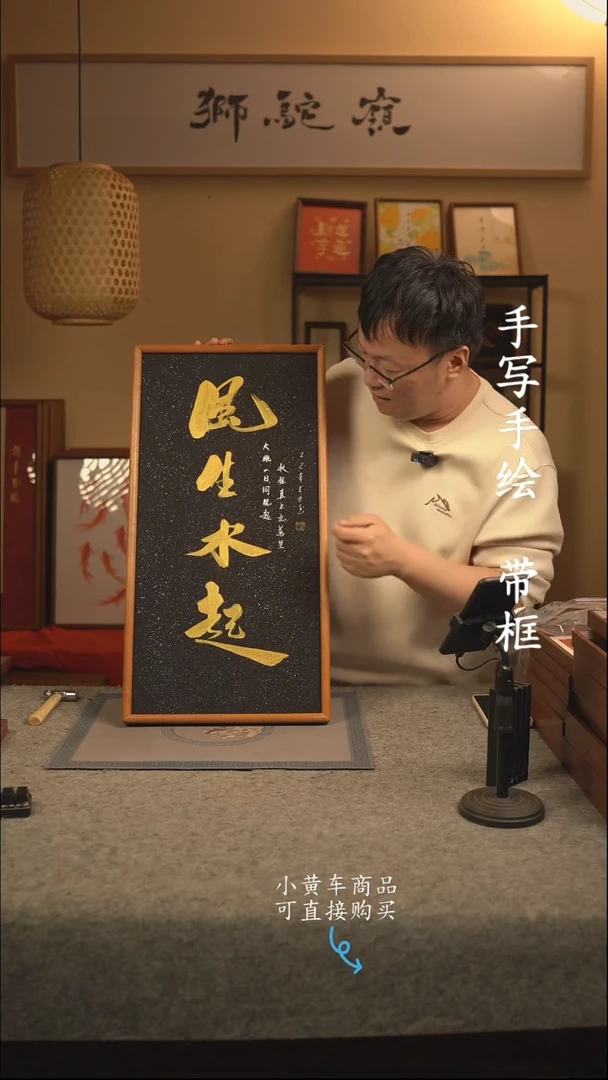 獅駝嶺
風生水起
大鵬一日同風起
扶摇直上九萬里
手写手绘 带框
小黄车商品
可直接购买